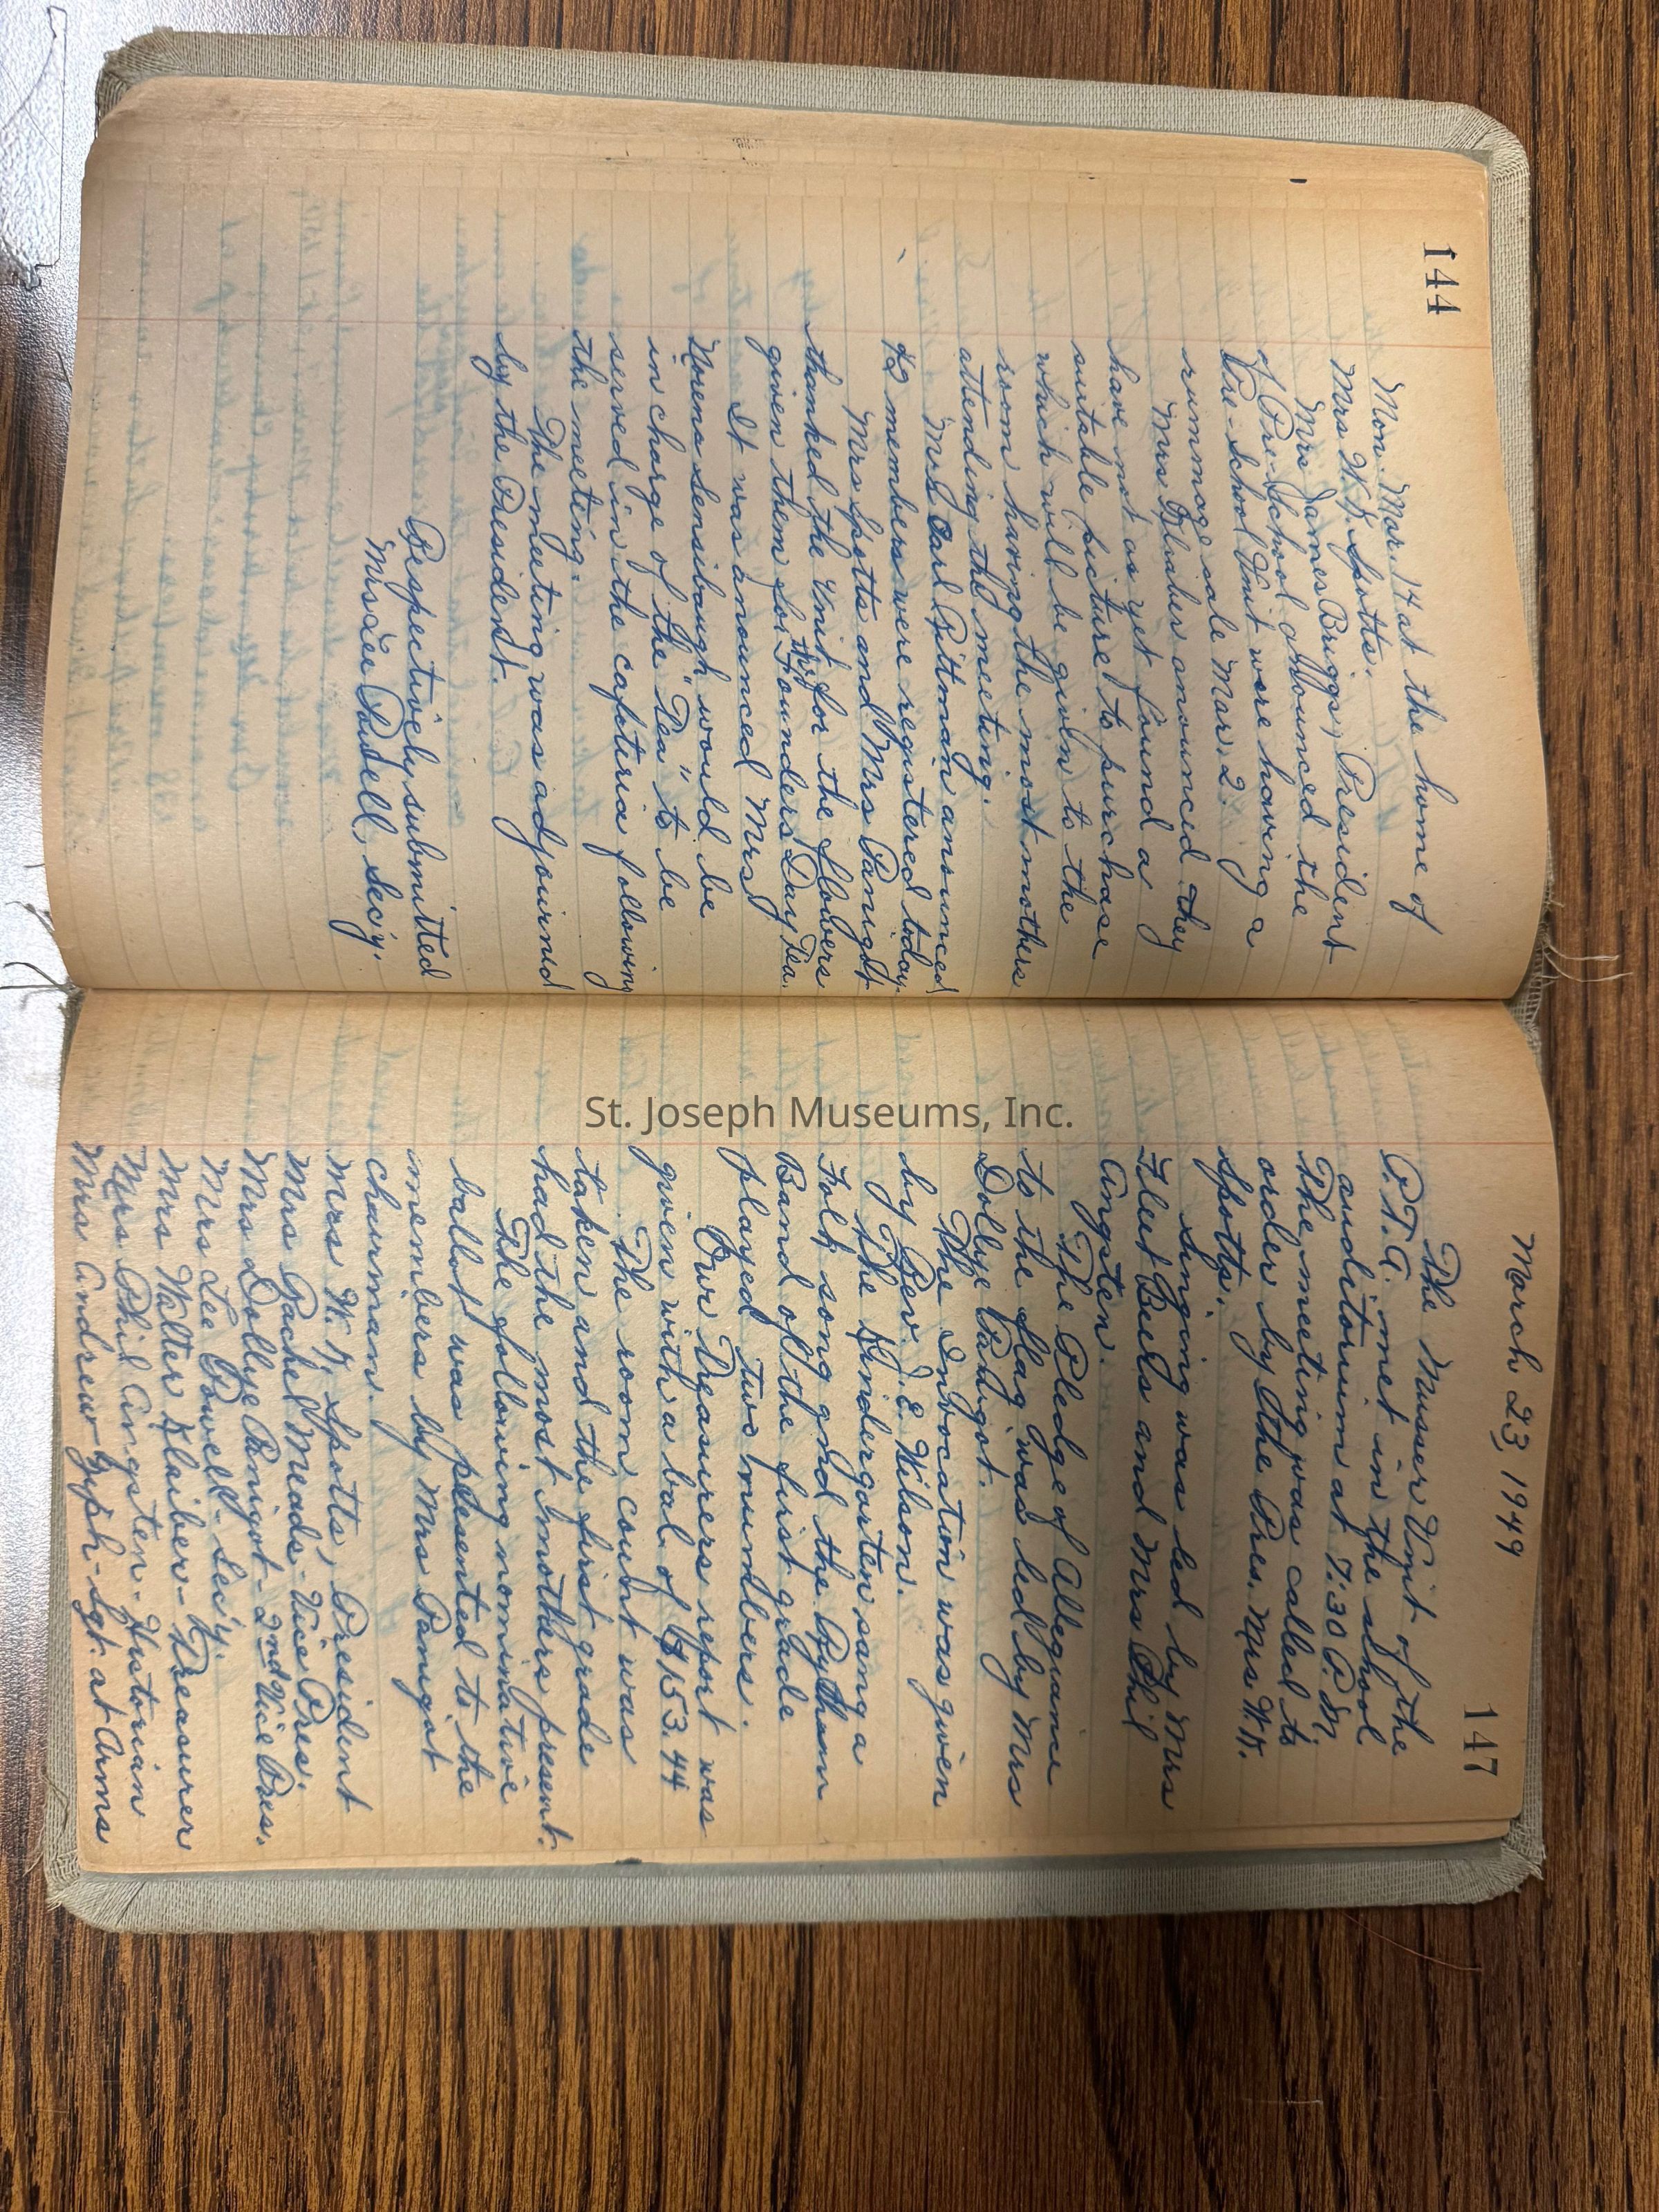 144
Mon. Mar. 14 at the home of
Mrs W. K. Spotts.
Mrs James Briggs, President
of Pre-School announced the
Pre-school Unit were having a
rummage sale Mar. 2.
Mrs Klaiber anounced they
have not as yet found a
suitable picture to purchase
which will be given to the
room having the most mothers
attending the meeting.
Mrs Carl Pitman anounced
42 members were registered today.
Mrs Spotts and Mrs Panigot
thanked the Unit for the flowers
given them for the Founders Day Tea.
It was anounced Mrs
Norena Sensibaugh would be
in charge of the "Tea" to be
served in the cafeteria following
the meeting.
The meeting was adjourned
by the President.
Respectively submitted
Mrs Lee Powell, Sec'y.
147
March 23, 1949
The Musser Unit of the
P.T.A. met in the school
auditorium at 7:30 P.M.
The meeting was called to
order by the Pres. Mrs W. K.
Spotts.
Singing was led by Mrs
Fleet Beels and Mrs Phil
Angsten.
The Pledge of Allegiance
to the flag was led by Mrs
Dollye Panigot.
The Invocation was given
by Rev. J. E. Wilson.
The Kindergarten sang a
Folk song and the Rythem
Band of the first grade
played two numbers.
Our Treasurers report was
given with a bal. of $153.44
The room count was
taken and the first grade
had the most mothers present.
The following nominative
ballot was presented to the
members by Mrs Panigot
chairman.
Mrs W. K. Spotts, President
Mrs Rachel Meads - Vice Pres.
Mrs Dollye Panigot - 2nd Vice Pres.
Mrs Lee Powell - Sec'y.
Mrs Walter Klaiber - Treasurer
Mrs Phil Angsten - Historian
Mrs Andrew Zyph - Sgt. at Arms
St. Joseph Museums, Inc.